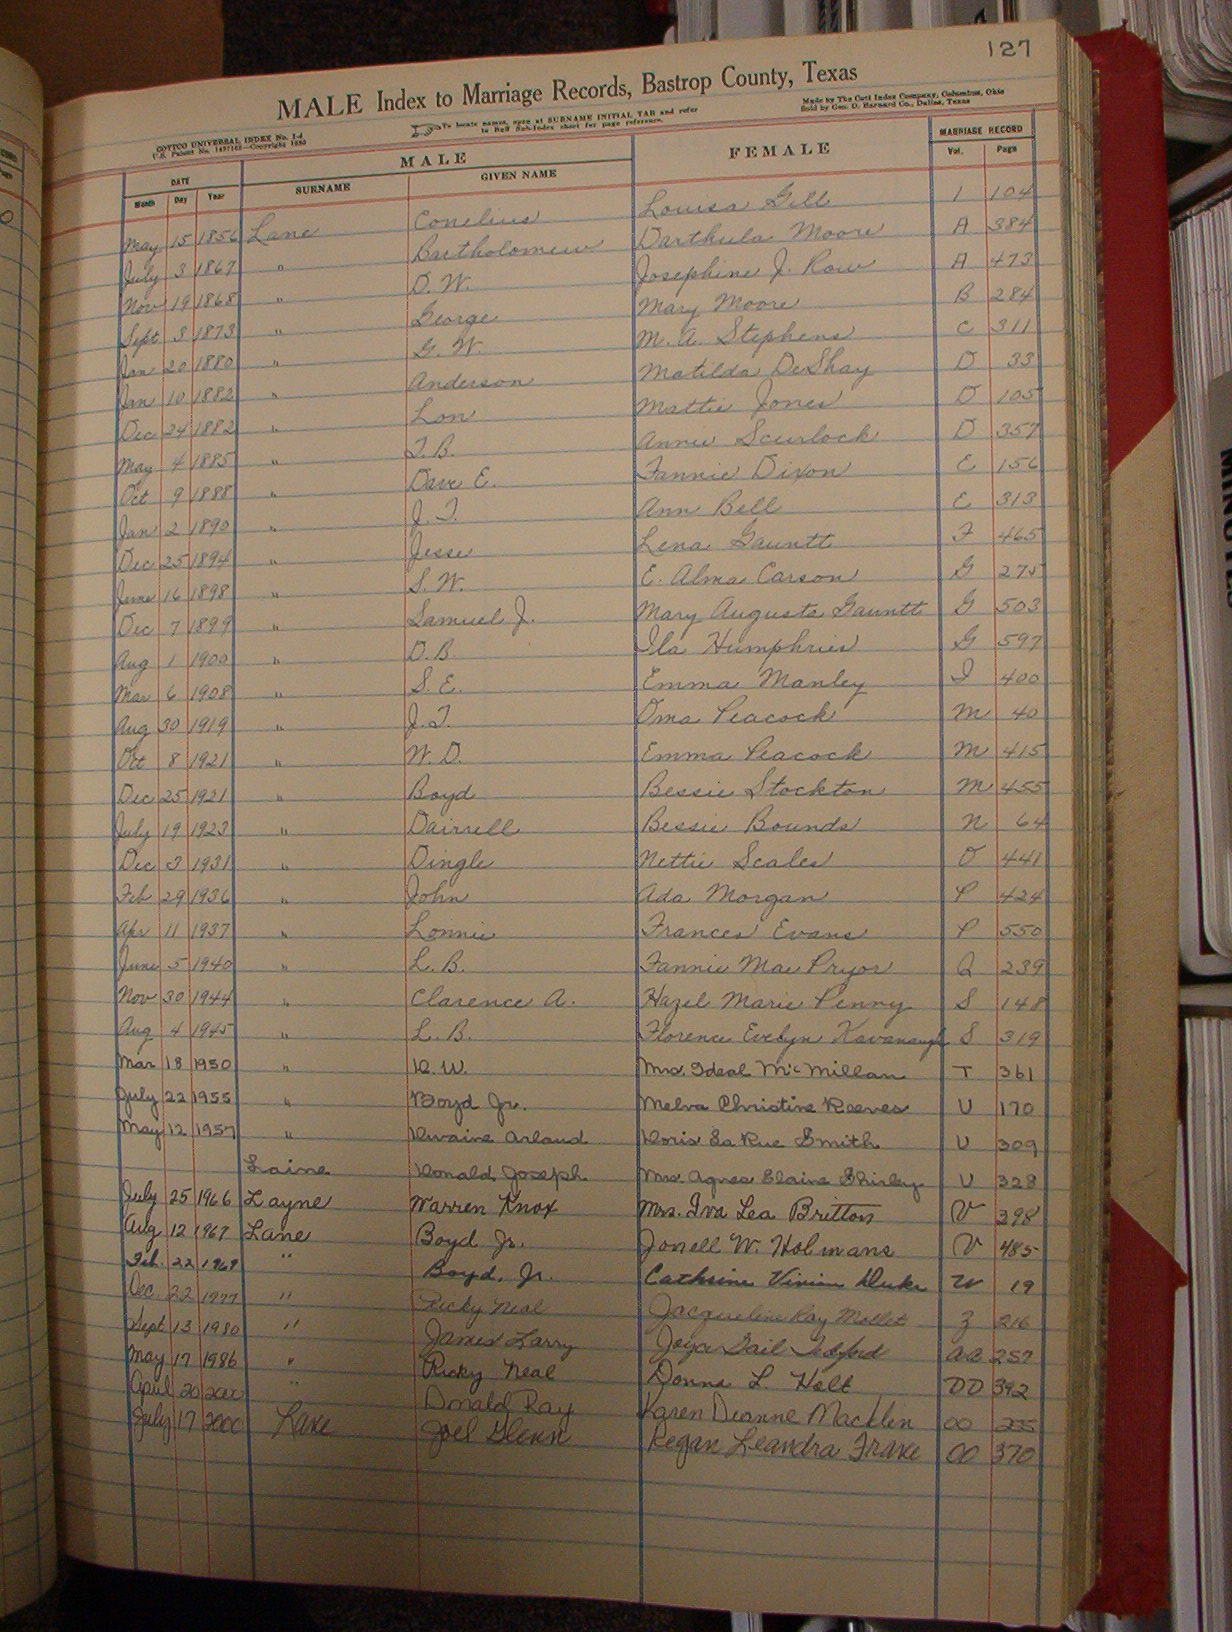 127
MALE Index to Marriage Records, Bastrop County, Texas
COTTCO UNIVERSAL INDEX No. 1-4 To locate names, open at SURNAME INITIAL TAB and refer Made by The Cott Index Company, Columbus, Ohio
U.S. Patent No. Copyright to Buff Sub-Index sheet for page reference. Sold by Geo. D. Barnard Co., Dallas, Texas
DATE MALE FEMALE MARRIAGE RECORD
Month Day Year SURNAME GIVEN NAME Vol. Page
May 15 1856 Lane Conelius Louisa Gill 1 104
July 3 1867 " Bartholomew Darthula Moore A 384
Nov 19 1868 " D. W. Josephine J. Row A 473
Sept 3 1873 " George Mary Moore B 284
Jan 20 1880 " G. W. M. A. Stephens C 311
Jan 10 1882 " Anderson Matilda DeShay D 33
Dec 24 1882 " Lon Mattie Jones D 105
May 4 1885 " T. B. Annie Scurlock D 357
Oct 9 1888 " Dave E. Fannie Dixon E 156
Jan 2 1890 " J. T. Ann Bell E 313
Dec 25 1894 " Jesse Lena Gauntt F 465
June 16 1898 " S. W. E. Alma Carson G 275
Dec 7 1899 " Samuel J. Mary Augusta Gauntt G 503
Aug 1 1900 " D. B. Ila Humphries G 597
Mar 6 1908 " S. E. Emma Manley I 400
Aug 30 1919 " J. T. Oma Peacock M 40
Oct 8 1921 " W. D. Emma Peacock M 415
Dec 25 1921 " Boyd Bessie Stockton M 455
July 19 1923 " Dairrell Bessie Bounds N 64
Dec 3 1931 " Dingle Nettie Scales O 441
Feb 29 1936 " John Ada Morgan P 424
Apr 11 1937 " Lonnie Frances Evans P 550
June 5 1940 " L. B. Fannie Mae Pryor Q 239
Nov 30 1944 " Clarence A. Hazel Marie Penny S 148
Aug 4 1945 " L. B. Florence Evelyn Kavanaugh S 319
Mar 18 1950 " D. W. Mrs. Ideal McMillan T 361
July 22 1955 " Boyd Jr. Melva Christine Reeves U 170
May 12 1957 " Dwaine Arland Doris La Rue Smith U 309
Laine Donald Joseph Mrs. Agnes Elaine Shirley U 328
July 25 1966 Layne Warren Knox Mrs. Iva Lea Britton V 398
Aug 12 1967 Lane Boyd Jr. Jonell W. Holmans V 485
Feb. 22 1969 " Boyd, Jr. Cathrine Vivian Duke W 19
Dec. 22 1977 " Ricky Neal Jacqueline Kay Z 216
Sept 13 1980 " James Larry Joya Gail Tedford AB 257
May 17 1986 " Ricky Neal Donna L. Holt DD 392
April 20 2000 " Donald Ray Karen Deanne Macklin OO
July 17 2000 Lane Joel Glenn Regan Leandra OO 370